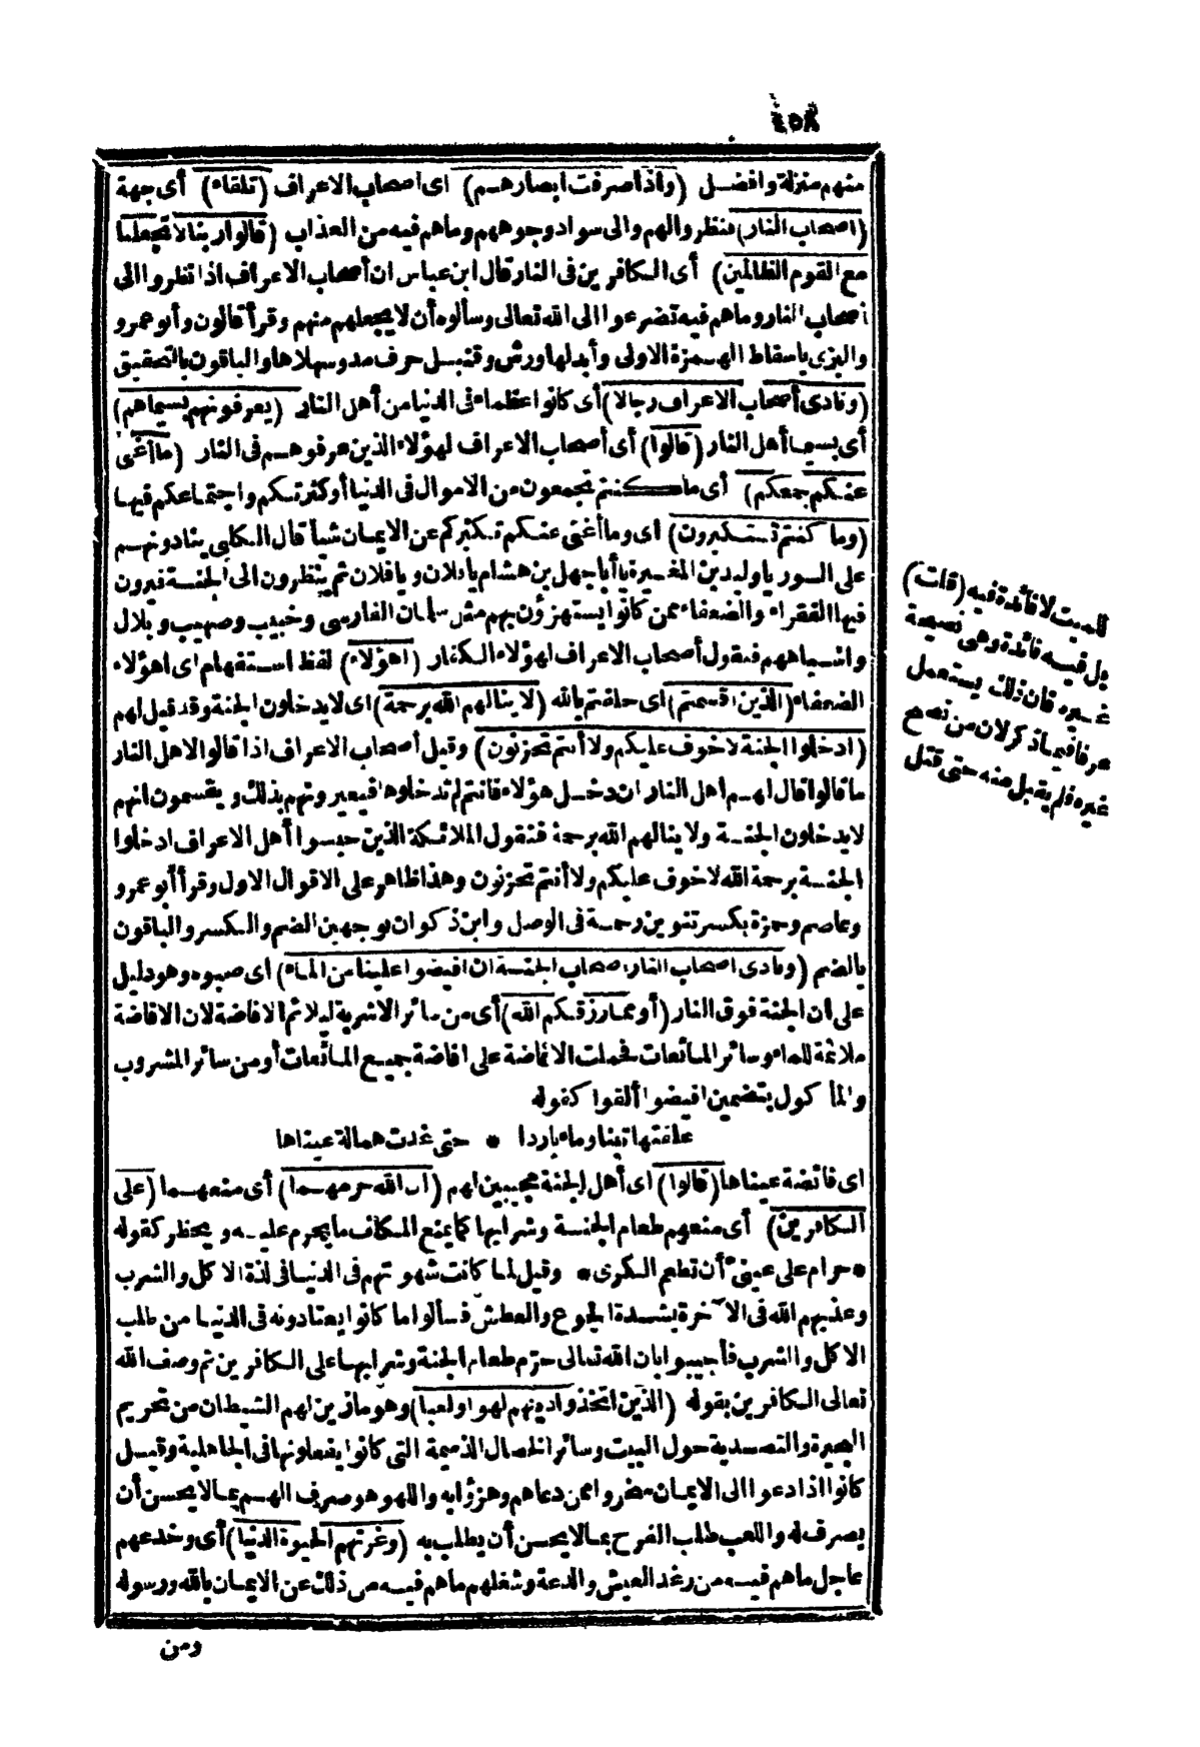 ٤٥٨
منهم منزلة وافضل (واذا صرفت ابصارهم) اى اصحاب الاعراف (تلقاء) أى جهة
(اصحاب النار) فنظروا لهم والى سواد وجوههم وما هم فيه من العذاب (قالوا ربنا لا تجعلنا
مع القوم الظالمين) أى الكافرين فى النار قال ابن عباس ان أصحاب الاعراف اذا نظروا الى
أصحاب النار وما هم فيه تضرعوا الى الله تعالى وسألوه أن لا يجعلهم منهم وقرأ قالون وأبو عمرو
والبزى باسقاط الهمزة الاولى وأبدلها ورش وقنبل حرف مد وسهلاها والباقون بالتحقيق
(ونادى أصحاب الاعراف رجالا) أى كانوا عظماء فى الدنيا من أهل النار (يعرفونهم بسيماهم)
أى بسيما أهل النار (قالوا) أى أصحاب الاعراف لهؤلاء الذين عرفوهم فى النار (ما أغنى
عنكم جمعكم) أى ما كنتم تجمعون من الاموال فى الدنيا أو كثرتكم واجتماعكم فيها
(وما كنتم تستكبرون) اى وما أغنى عنكم تكبركم عن الايمان شيأ قال الكلبى ينادونهم
على السور يا وليد بن المغيرة يا أبا جهل بن هشام يا فلان ويا فلان ثم ينظرون الى الجنة فيرون
فيها الفقراء والضعفاء ممن كانوا يستهزؤن بهم مثل سلمان الفارسى وخبيب وصهيب وبلال
واشباههم فيقول أصحاب الاعراف لهؤلاء الكفار (اهؤلاء) لفظ استفهام اى اهؤلاء
الضعفاء (الذين اقسمتم) اى حلفتم بالله (لا ينالهم الله برحمة) اى لا يدخلون الجنة وقد قيل لهم
(ادخلوا الجنة لا خوف عليكم ولا أنتم تحزنون) وقيل أصحاب الاعراف اذا قالوا لاهل النار
ما قالوا قال لهم اهل النار ان دخل هؤلاء فانتم لم تدخلوها فيعيرونهم بذلك ويقسمون انهم
لا يدخلون الجنة ولا ينالهم الله برحمة فتقول الملائكة الذين حبسوا أهل الاعراف ادخلوا
الجنة برحمة الله لا خوف عليكم ولا أنتم تحزنون وهذا ظاهر على الاقوال الاول وقرأ أبو عمرو
وعاصم وحمزة بكسر تنوين رحمة فى الوصل وابن ذكوان بوجهين الضم والكسر والباقون
بالضم (ونادى اصحاب النار اصحاب الجنة ان افيضوا علينا من الماء) اى صبوه وهو دليل
على ان الجنة فوق النار (أو مما رزقكم الله) أى من سائر الاشربة ليلائم الافاضة لان الافاضة
ملائمة للماء وسائر المائعات فحملت الافاضة على افاضة جميع المائعات أو من سائر المشروب
والمأكول بتضمين افيضوا ألقوا كقوله
علفتها تبنا وماء باردا * حتى غدت همالة عيناها
اى فائضة عيناها (قالوا) اى أهل الجنة مجيبين لهم (ان الله حرمهما) أى منعهما (على
الكافرين) أى منعهم طعام الجنة وشرابها كما يمنع المكلف ما يحرم عليه ويحظر كقوله
* حرام على عينى أن تطعم الكرى * وقيل لما كانت شهوتهم فى الدنيا فى لذة الاكل والشرب
وعذبهم الله فى الآخرة بشدة الجوع والعطش فسألوا ما كانوا يعتادونه فى الدنيا من طلب
الاكل والشرب فأجيبوا بان الله تعالى حرم طعام الجنة وشرابها على الكافرين ثم وصف الله
تعالى الكافرين بقوله (الذين اتخذوا دينهم لهوا ولعبا) وهو ما زين لهم الشيطان من تحريم
البحيرة والتصدية حول البيت وسائر الخصال الذميمة التى كانوا يفعلونها فى الجاهلية وقيل
كانوا اذا دعوا الى الايمان سخروا ممن دعاهم وهزؤا به واللهو هو صرف الهم بما لا يحسن أن
يصرف له واللعب طلب الفرح بما لا يحسن أن يطلب به (وغرتهم الحيوة الدنيا) أى وخدعهم
عاجل ما هم فيه من رغد العيش والدعة وشغلهم ما هم فيه من ذلك عن الايمان بالله ورسوله
ومن
للميت لا فائدة فيه (قلت)
بل فيه فائدة وهى نصيحة
غيره فان ذلك يستعمل
عرفا فيما ذكر لان من نصح
غيره فلم يقبل منه حتى قتل